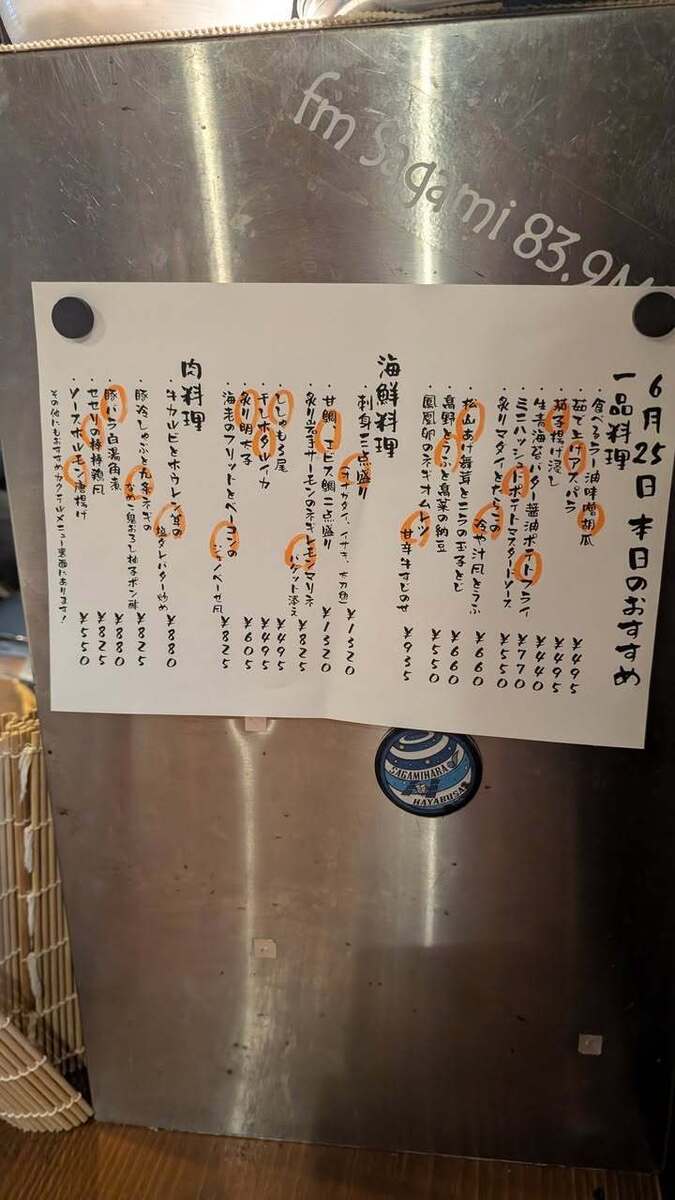 fm Sagami 83.9M
6月25日 本日のおすすめ
一品料理
・食べるラー油味噌胡瓜 ¥495
・茹で上げアスパラ ¥495
・茄子揚げ浸し ¥440
・生青海苔バター醤油ポテトフライ ¥770
・ミニハッシュドポテトマスタードソース ¥550
・炙りマダイとたらこの
冷や汁風とうふ ¥660
・松山あげ舞茸とニラの玉子とじ ¥660
・高野とうふと高菜の納豆 ¥550
・鳳凰卵のネギオムレツ
甘辛牛すじのせ ¥935
海鮮料理
・刺身三点盛り
(オナガダイ、イサキ、太刀魚) ¥1320
・甘鯛、エビス鯛二点盛り ¥1320
・炙り岩手サーモンのネギレモンマリネ
バゲット添え ¥825
・ししゃも5尾 ¥495
・干しホタルイカ ¥495
・炙り明太子 ¥605
・海老のフリットとベーコンの
ジェノベーゼ風 ¥825
肉料理
・牛カルビとホウレン草の
塩ダレバター炒め ¥880
・豚冷しゃぶと九条ネギの
なめこ鬼おろし柚子ポン酢 ¥825
・豚バラ白湯角煮 ¥880
・セセリの棒棒鶏風 ¥825
・ソースホルモン唐揚げ ¥550
その他にもおすすめカクテルメニュー裏面にあります!
SAGAMIHARA
HAYABUSA